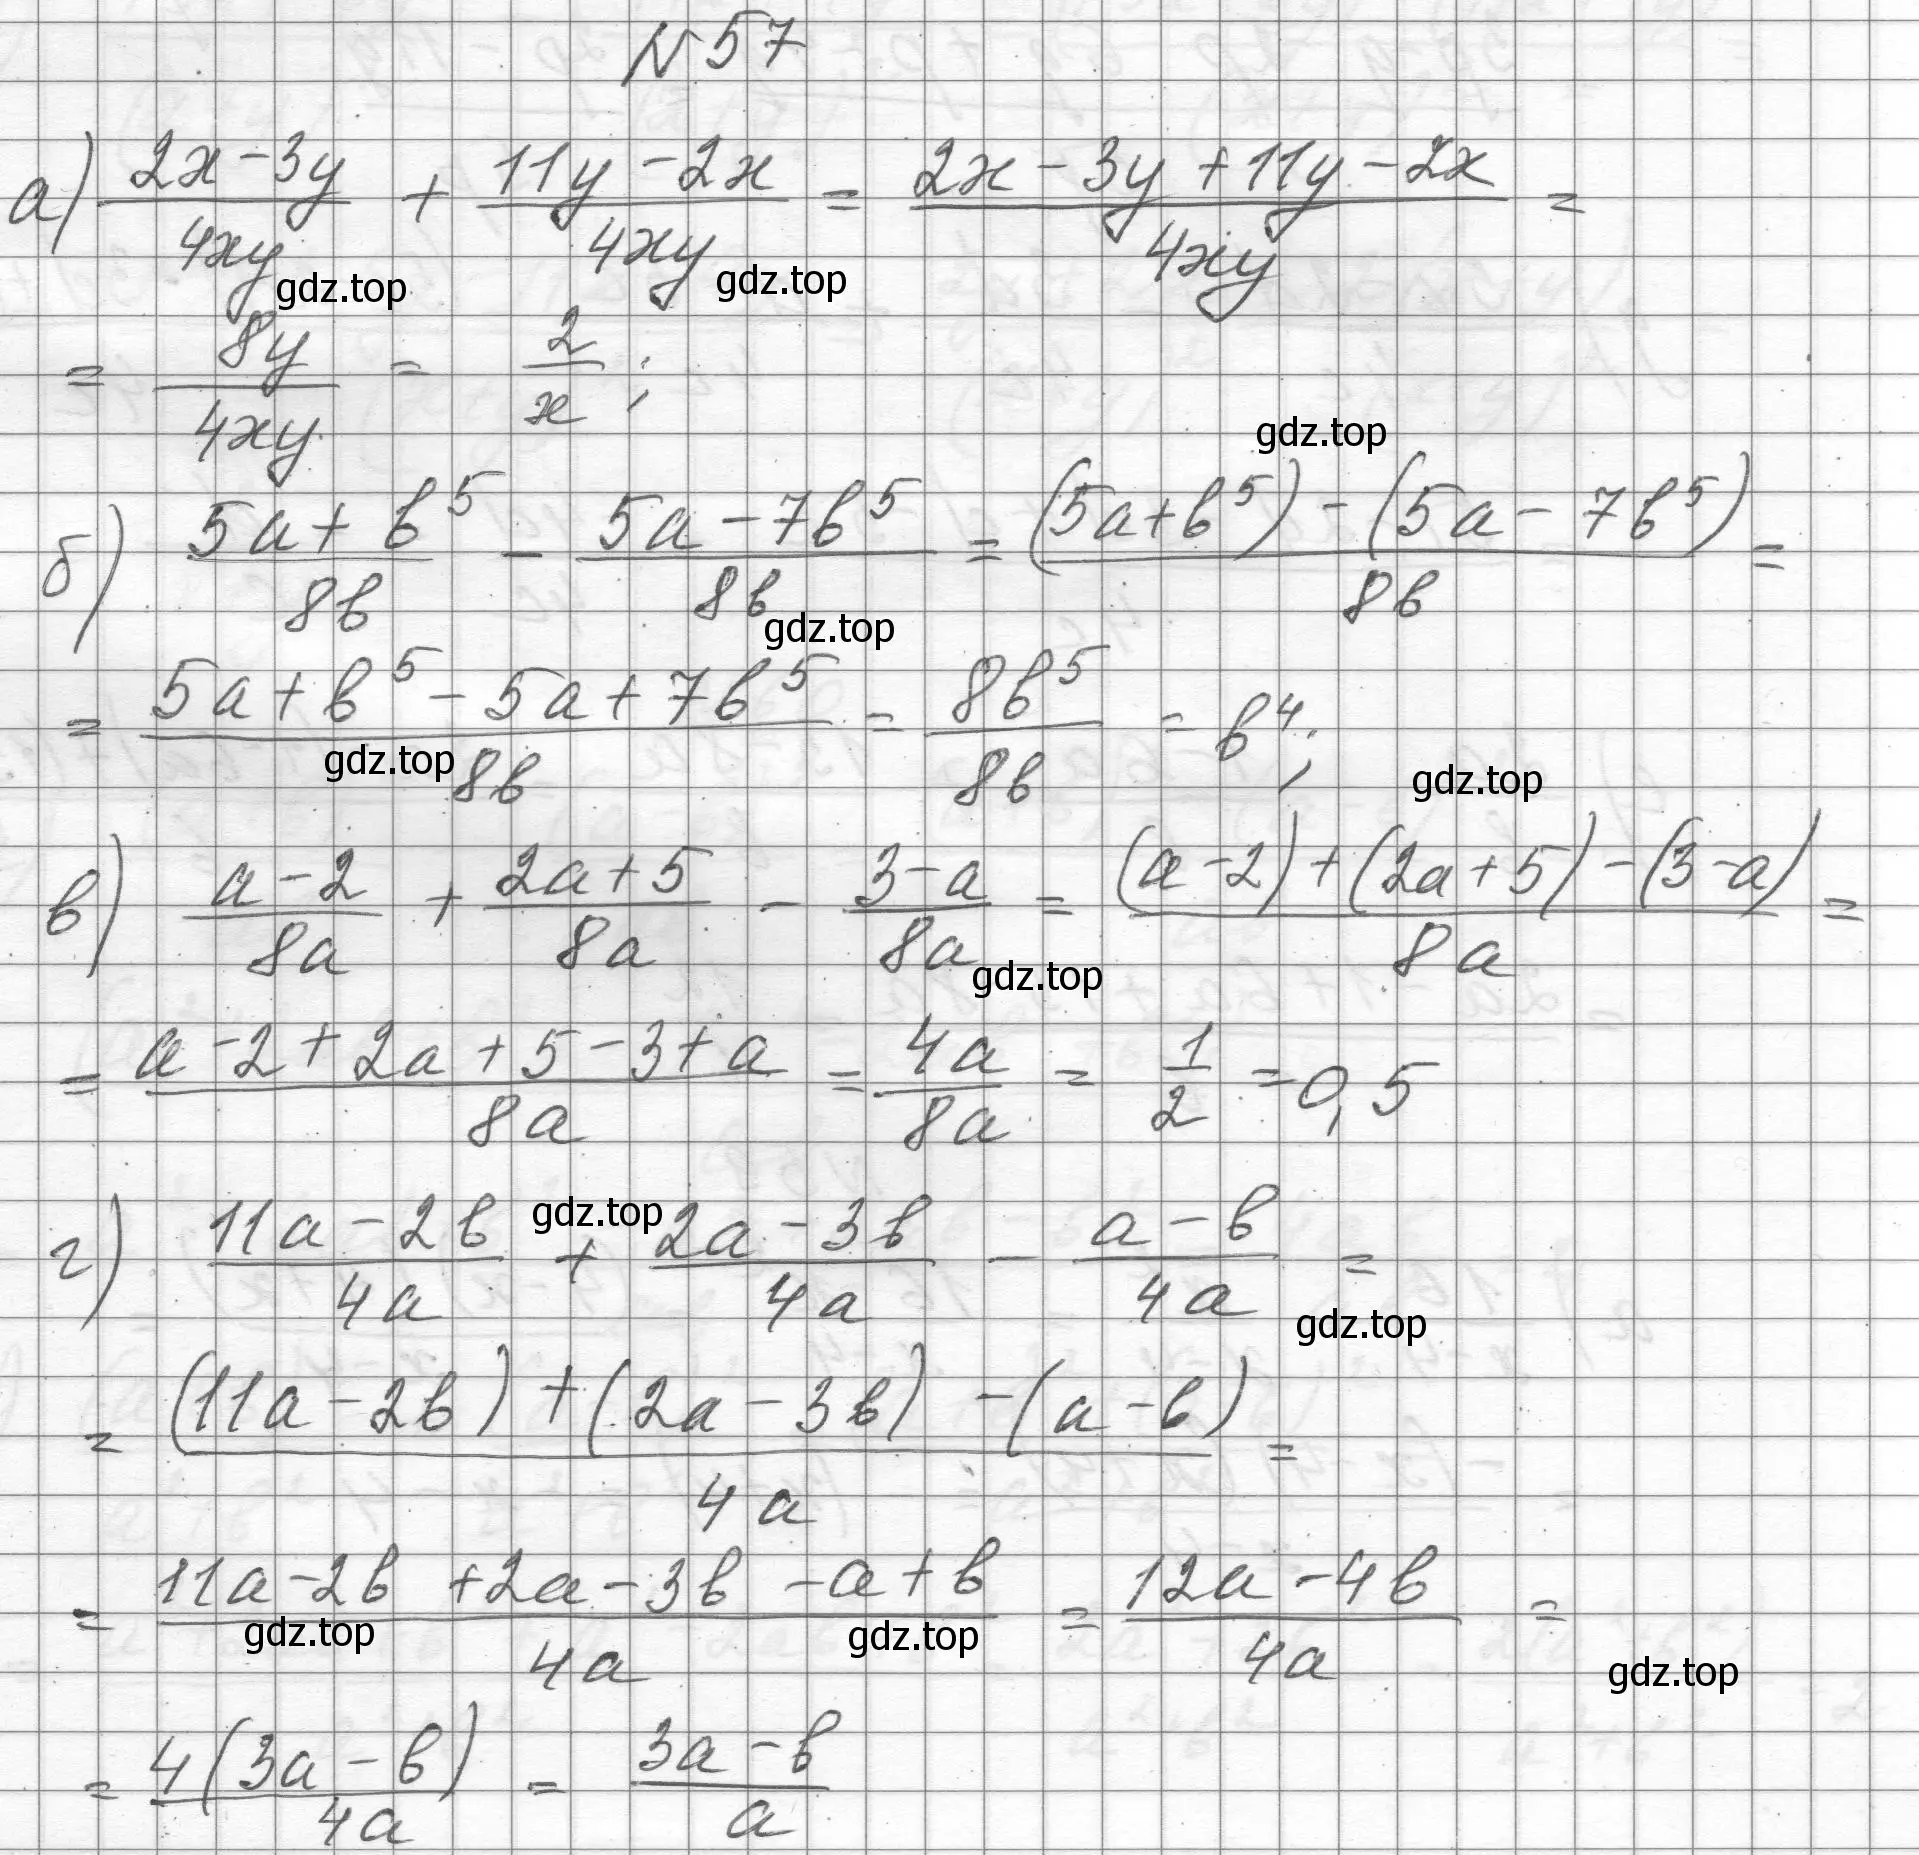 N57
а) (2x-3y)/(4xy) + (11y-2x)/(4xy) = (2x-3y+11y-2x)/(4xy) =
gdz.top gdz.top
= 8y/(4xy) = 2/x ;
gdz.top
б) (5a+b^5)/(8b) - (5a-7b^5)/(8b) = ((5a+b^5)-(5a-7b^5))/(8b) =
gdz.top
= (5a+b^5-5a+7b^5)/(8b) = 8b^5/(8b) = b^4;
gdz.top gdz.top
в) (a-2)/(8a) + (2a+5)/(8a) - (3-a)/(8a) = ((a-2)+(2a+5)-(3-a))/(8a) =
gdz.top
= (a-2+2a+5-3+a)/(8a) = 4a/(8a) = 1/2 = 0,5
г) (11a-2b)/(4a) + (2a-3b)/(4a) - (a-b)/(4a) =
gdz.top gdz.top
= ((11a-2b)+(2a-3b)-(a-b))/(4a) =
= (11a-2b+2a-3b-a+b)/(4a) = (12a-4b)/(4a) =
gdz.top gdz.top gdz.top
= 4(3a-b)/(4a) = (3a-b)/a